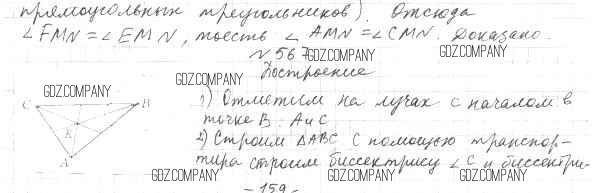 прямоугольных треугольников). Отсюда
∠FMN = ∠EMN, тоесть ∠AMN = ∠CMN. Доказано.
№567 GDZ.COMPANY
GDZ.COMPANY
Построение
GDZ.COMPANY
C B
K
A
1) Отметим на лучах с началом в
точке B: A и C
2) Строим ΔABC с помощью транспор-
тира строим биссектрису ∠C и биссектри-
GDZ.COMPANY GDZ.COMPANY GDZ.COMPANY
- 159 -